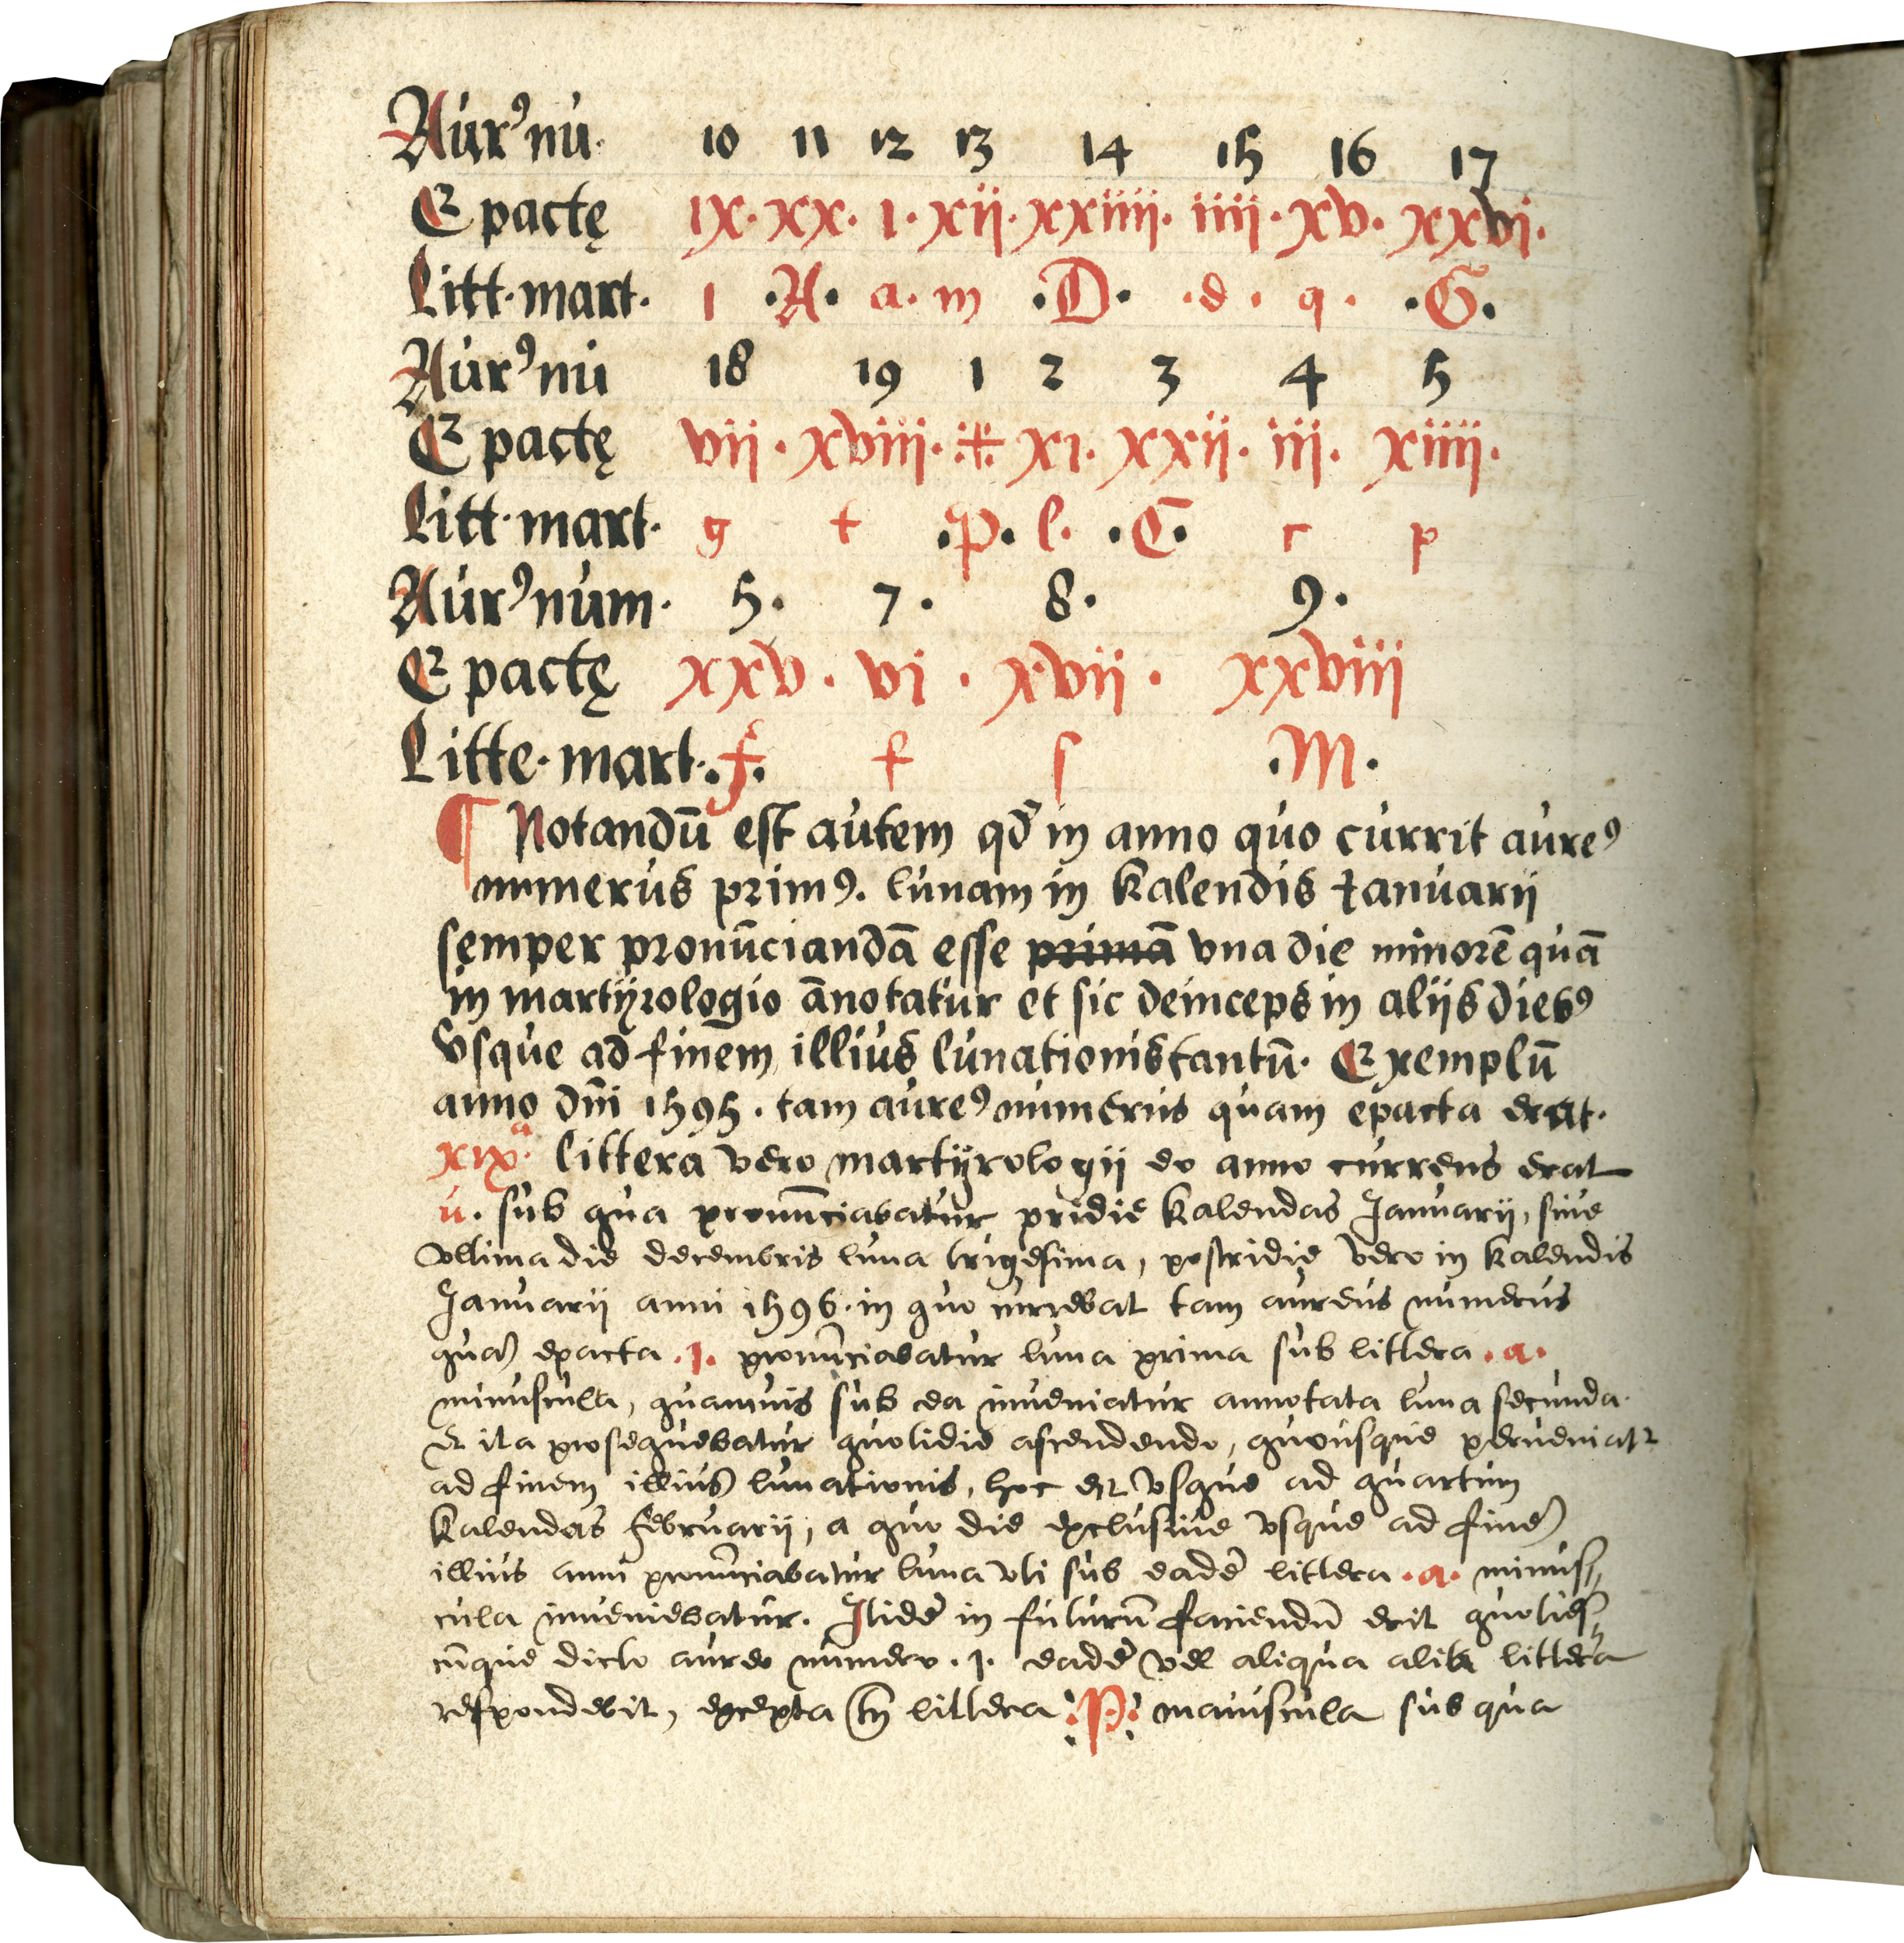 Aurꝰ nu. 10 11 12 13 14 15 16 17
Epactę ix. xx. i. xij. xxiiij. iiij. xv. xxvi.
Litt. mart. l .A. a. m .D. .d. q. .G.
Aurꝰ nu 18 19 1 2 3 4 5
Epactę vij. xviij. xi. xxij. iij. xiiij.
Litt. mart. g t .P. l. .C. c p
Aurꝰ num. 5. 7. 8. 9.
Epactę xxv. vi. xvij. xxviij
Litte. mart. .f. f s .M.
¶ Notandū est autem qd̄ in anno quo currit aureꝰ
numerus primꝰ. lunam in kalendis Ianuarij
semper pronūciandā esse primā vna die minorē quā
in martijrologio ānotatur et sic deinceps in alijs diebꝰ
vsque ad finem illius lunationis tantū. Exemplū
anno dm̄i 1595. tam aureꝰ numerus quam epacta erat.
xixᵃ. littera vero martijrologij eo anno currens erat
u. sub qua pronūciabatur pridie kalendas Januarij, siue
vltima die decembris luna trigesima, postridie vero in kalendis
Januarij anni 1596. in quo currebat tam aureus numerus
quā epacta .1. pronūciabatur luna prima sub littera .a.
minuscula, quamuis sub ea inueniatur annotata luna secunda.
et ita prosequebatur quotidie ascendendo, quousque perueniatr
ad finem illius lunationis, hoc est vsque ad quartum
kalendas februarij, a quo die exclusiue vsque ad finē
illius anni pronūciabatur luna vti sub eadē littera .a. minus//
cula inueniebatur. Itidē in futurū faciendū erit quoties//
cūque dicto aureo numero .1. eadē vel aliqua alia littera
respondebit, excepta tn̄ littera :P: maiuscula sub qua